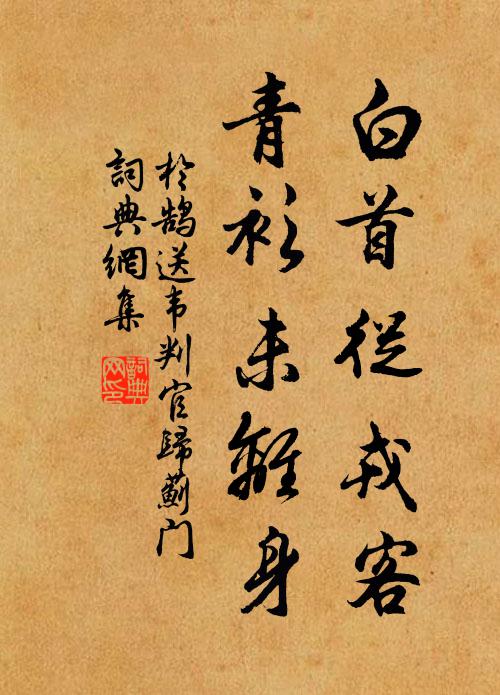 白首從戎客
青衫未離身
於鵠送韦判官歸薊门
詞典網集
詞典网印